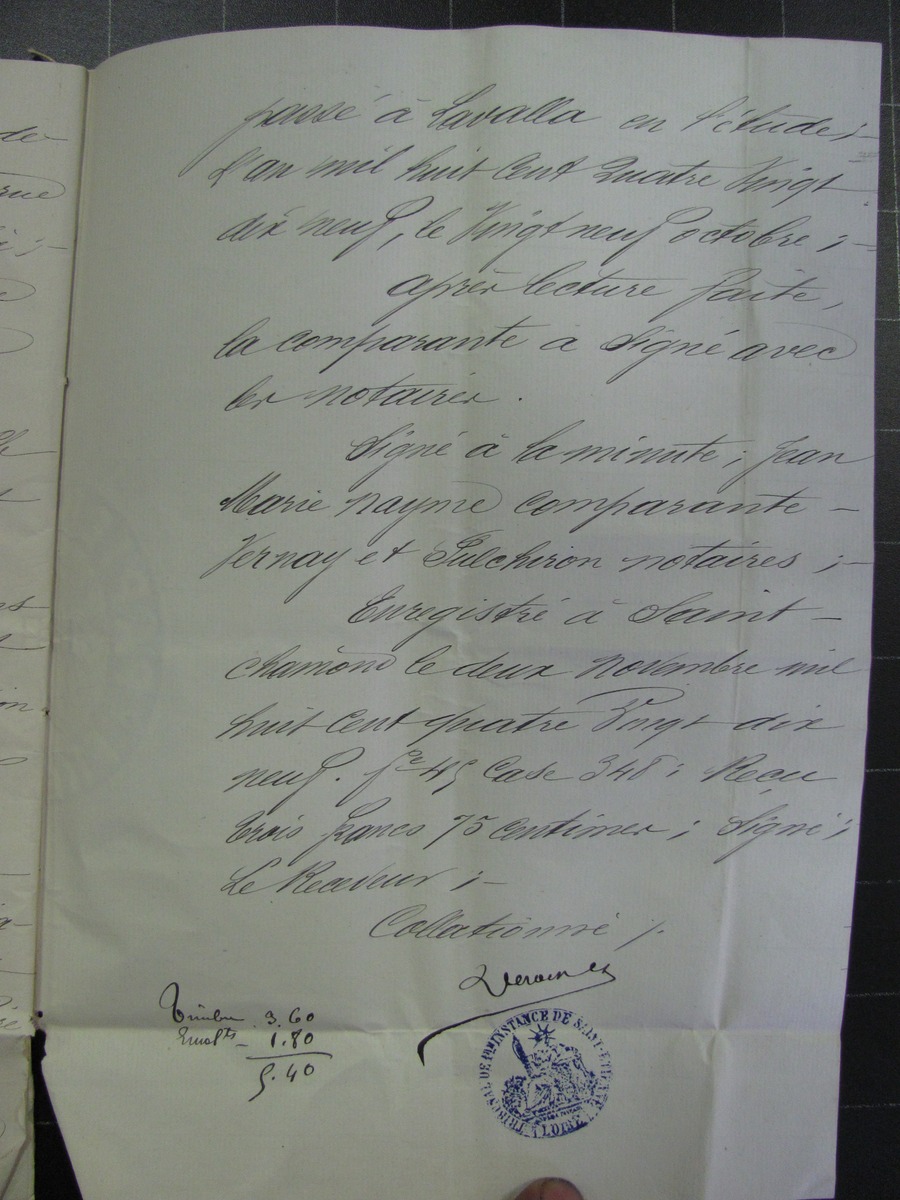 passé à Lavalla en l'étude ;-
L'an mil huit Cent Quatre Vingt
dix neuf, le Vingt neuf octobre ;-
après lecture faite,
la comparante a Signé avec
les notaires.
Signé à la minute ; Jean
Marie nayme comparante -
Vernay et Pulchiron notaires ;-
Enregistré à Saint -
chamond le deux novembre mil
huit cent quatre Vingt dix
neuf. f° 45 Case 348 ; Reçu
trois francs 75 centimes ; Signé ;
Le Receveur ;-
Collationné /.
Timbre 3.60
Emolts - 1.80
5.40
TRIBUNAL DE 1re INSTANCE DE SAINT-ETIENNE
(LOIRE)